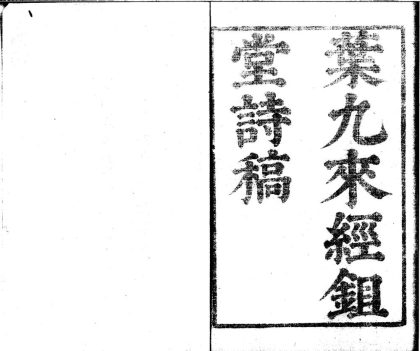 葉九來經鉏
堂詩稿